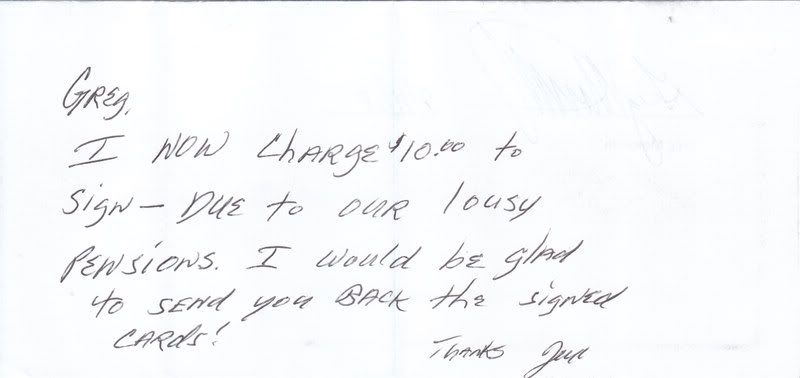 Greg,
I now charge $10.00 to
sign — Due to our lousy
pensions. I would be glad
to send you back the signed
cards!
Thanks